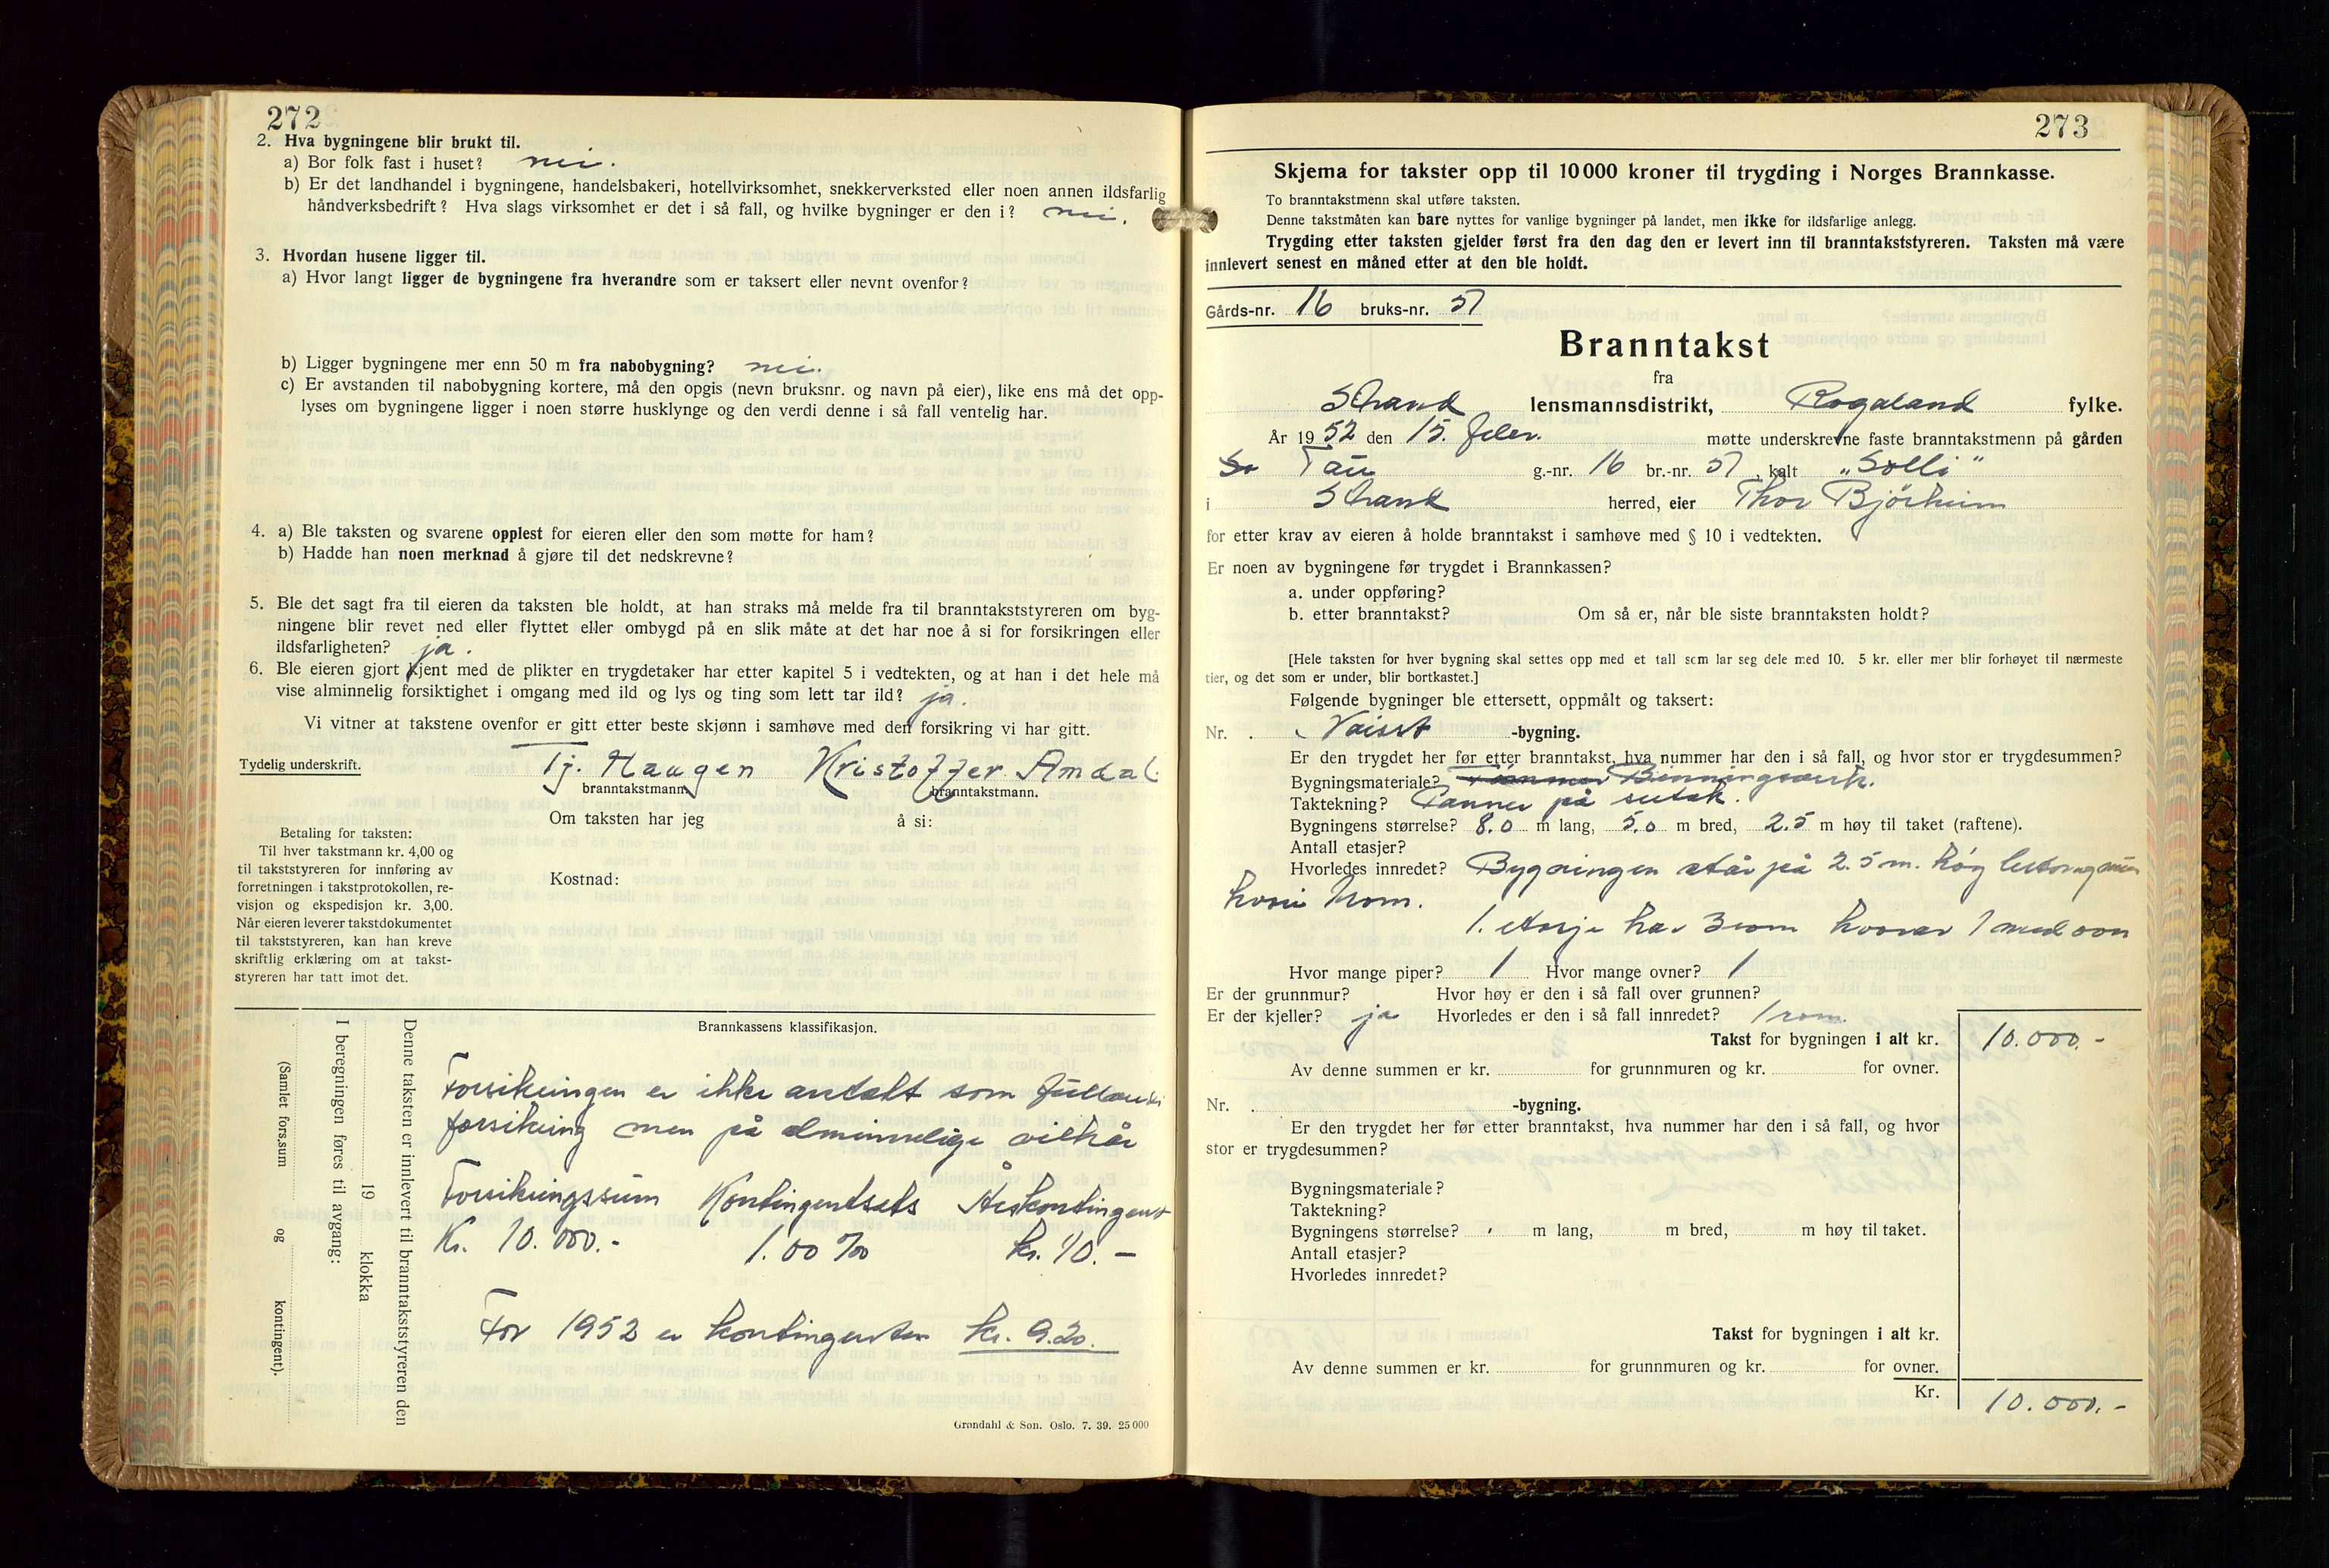 272
2. Hva bygningene blir brukt til.
a) Bor folk fast i huset? nei.
b) Er det landhandel i bygningene, handelsbakeri, hotellvirksomhet, snekkerverksted eller noen annen ildsfarlig
håndverksbedrift? Hva slags virksomhet er det i så fall, og hvilke bygninger er den i? nei.
3. Hvordan husene ligger til.
a) Hvor langt ligger de bygningene fra hverandre som er taksert eller nevnt ovenfor?
b) Ligger bygningene mer enn 50 m fra nabobygning? nei.
c) Er avstanden til nabobygning kortere, må den opgis (nevn bruksnr. og navn på eier), like ens må det opp-
lyses om bygningene ligger i noen større husklynge og den verdi denne i så fall ventelig har.
4. a) Ble taksten og svarene opplest for eieren eller den som møtte for ham?
b) Hadde han noen merknad å gjøre til det nedskrevne?
5. Ble det sagt fra til eieren da taksten ble holdt, at han straks må melde fra til branntakststyreren om byg-
ningene blir revet ned eller flyttet eller ombygd på en slik måte at det har noe å si for forsikringen eller
ildsfarligheten? ja.
6. Ble eieren gjort kjent med de plikter en trygdetaker har etter kapitel 5 i vedtekten, og at han i det hele må
vise alminnelig forsiktighet i omgang med ild og lys og ting som lett tar ild? ja.
Vi vitner at takstene ovenfor er gitt etter beste skjønn i samhøve med den forsikring vi har gitt.
Tydelig underskrift. Tj. Haugen Kristoffer Amdal
branntakstmann. branntakstmann.
Om taksten har jeg å si:
Betaling for taksten:
Til hver takstmann kr. 4,00 og
til takststyreren for innføring av
forretningen i takstprotokollen, re-
visjon og ekspedisjon kr. 3,00.
Når eieren leverer takstdokumentet
til takststyreren, kan han kreve
skriftlig erklæring om at takst-
styreren har tatt imot det.
Kostnad:
Denne taksten er innlevert til branntakststyreren den
19 klokka
I beregningen føres til avgang:
(Samlet fors.sum og kontingent).
Brannkassens klassifikasjon.
Forsikringen er ikke antatt som
forsikring men på alminnelige vilkår
Forsikringssum Kontingentsats Årskontingent
Kr. 10.000.- 1.00 ‰ kr. 10.-
For 1952 er kontingenten kr. 9.20.
Grøndahl & Søn. Oslo. 7. 39. 25 000
273
Skjema for takster opp til 10 000 kroner til trygding i Norges Brannkasse.
To branntakstmenn skal utføre taksten.
Denne takstmåten kan bare nyttes for vanlige bygninger på landet, men ikke for ildsfarlige anlegg.
Trygding etter taksten gjelder først fra den dag den er levert inn til branntakststyreren. Taksten må være
innlevert senest en måned etter at den ble holdt.
Gårds-nr. 16 bruks-nr. 57
Branntakst
fra
Strand lensmannsdistrikt, Rogaland fylke.
År 1952 den 15. febr. møtte underskrevne faste branntakstmenn på gården
Tau g.-nr. 16 br.-nr. 57, kalt „Solli"
i Strand herred, eier Thor Bjørheim
for etter krav av eieren å holde branntakst i samhøve med § 10 i vedtekten.
Er noen av bygningene før trygdet i Brannkassen?
a. under oppføring?
b. etter branntakst? Om så er, når ble siste branntaksten holdt?
[Hele taksten for hver bygning skal settes opp med et tall som lar seg dele med 10. 5 kr. eller mer blir forhøyet til nærmeste
tier, og det som er under, blir bortkastet.]
Følgende bygninger ble ettersett, oppmålt og taksert:
Nr. . -bygning.
Er den trygdet her før etter branntakst, hva nummer har den i så fall, og hvor stor er trygdesummen?
Bygningsmateriale? Binningsverk.
Taktekning? Panner på sutak.
Bygningens størrelse? 8.0 m lang, 5.0 m bred, 2.5 m høy til taket (raftene).
Antall etasjer?
Hvorledes innredet? Bygningen står på 2.5 m. høg
1 rom.
1. etasje har 3 rom hvorav 1 med ovn
Hvor mange piper? 1 Hvor mange ovner? 1
Er der grunnmur? Hvor høy er den i så fall over grunnen?
Er der kjeller? ja Hvorledes er den i så fall innredet? 1 rom.
Takst for bygningen i alt kr. 10.000.-
Av denne summen er kr. for grunnmuren og kr. for ovner.
Nr. . -bygning.
Er den trygdet her før etter branntakst, hva nummer har den i så fall, og hvor
stor er trygdesummen?
Bygningsmateriale?
Taktekning?
Bygningens størrelse? m lang, m bred, m høy til taket.
Antall etasjer?
Hvorledes innredet?
Takst for bygningen i alt kr.
Av denne summen er kr. for grunnmuren og kr. for ovner.
Kr. 10.000.-